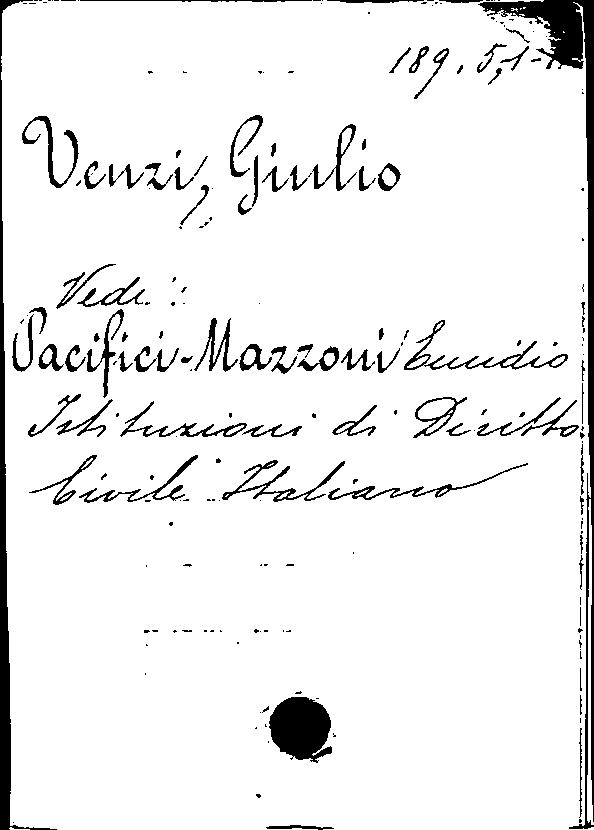 189. 5,1-
Venzi, Giulio
Vedi:
Pacifici-Mazzoni Emidio
Istituzioni di Diritto
Civile Italiano